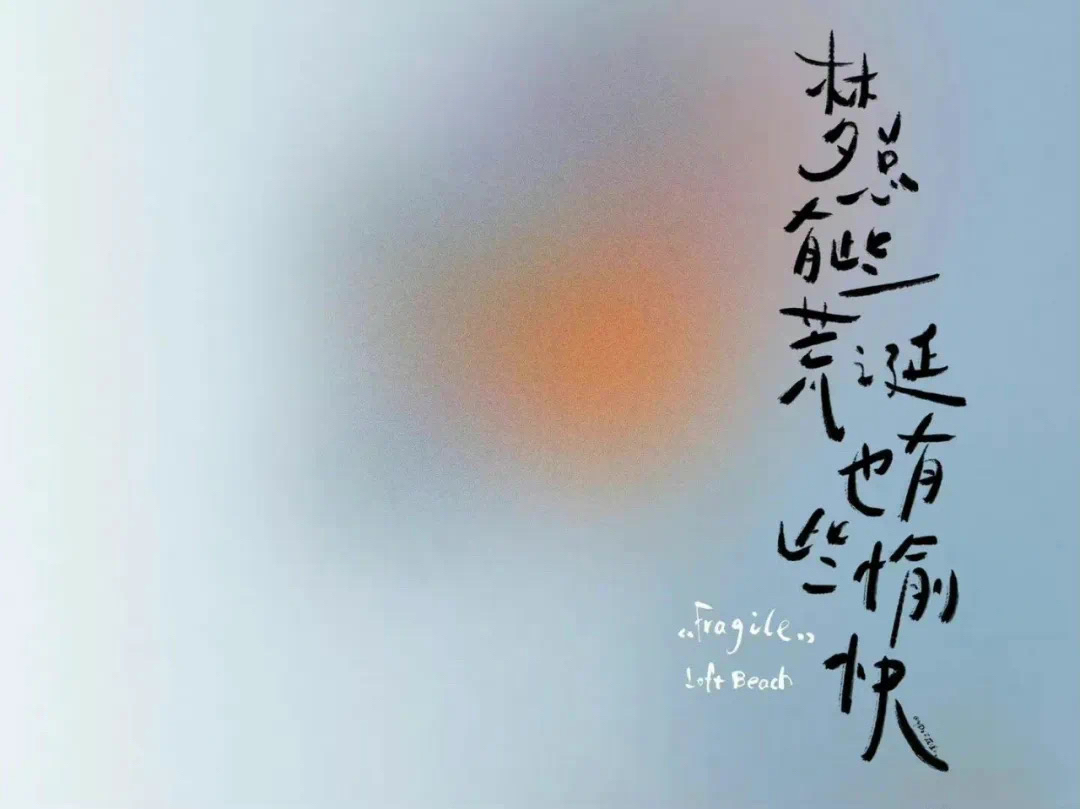 梦总有些荒诞也有些愉快
“Fragile”
Loft Beach